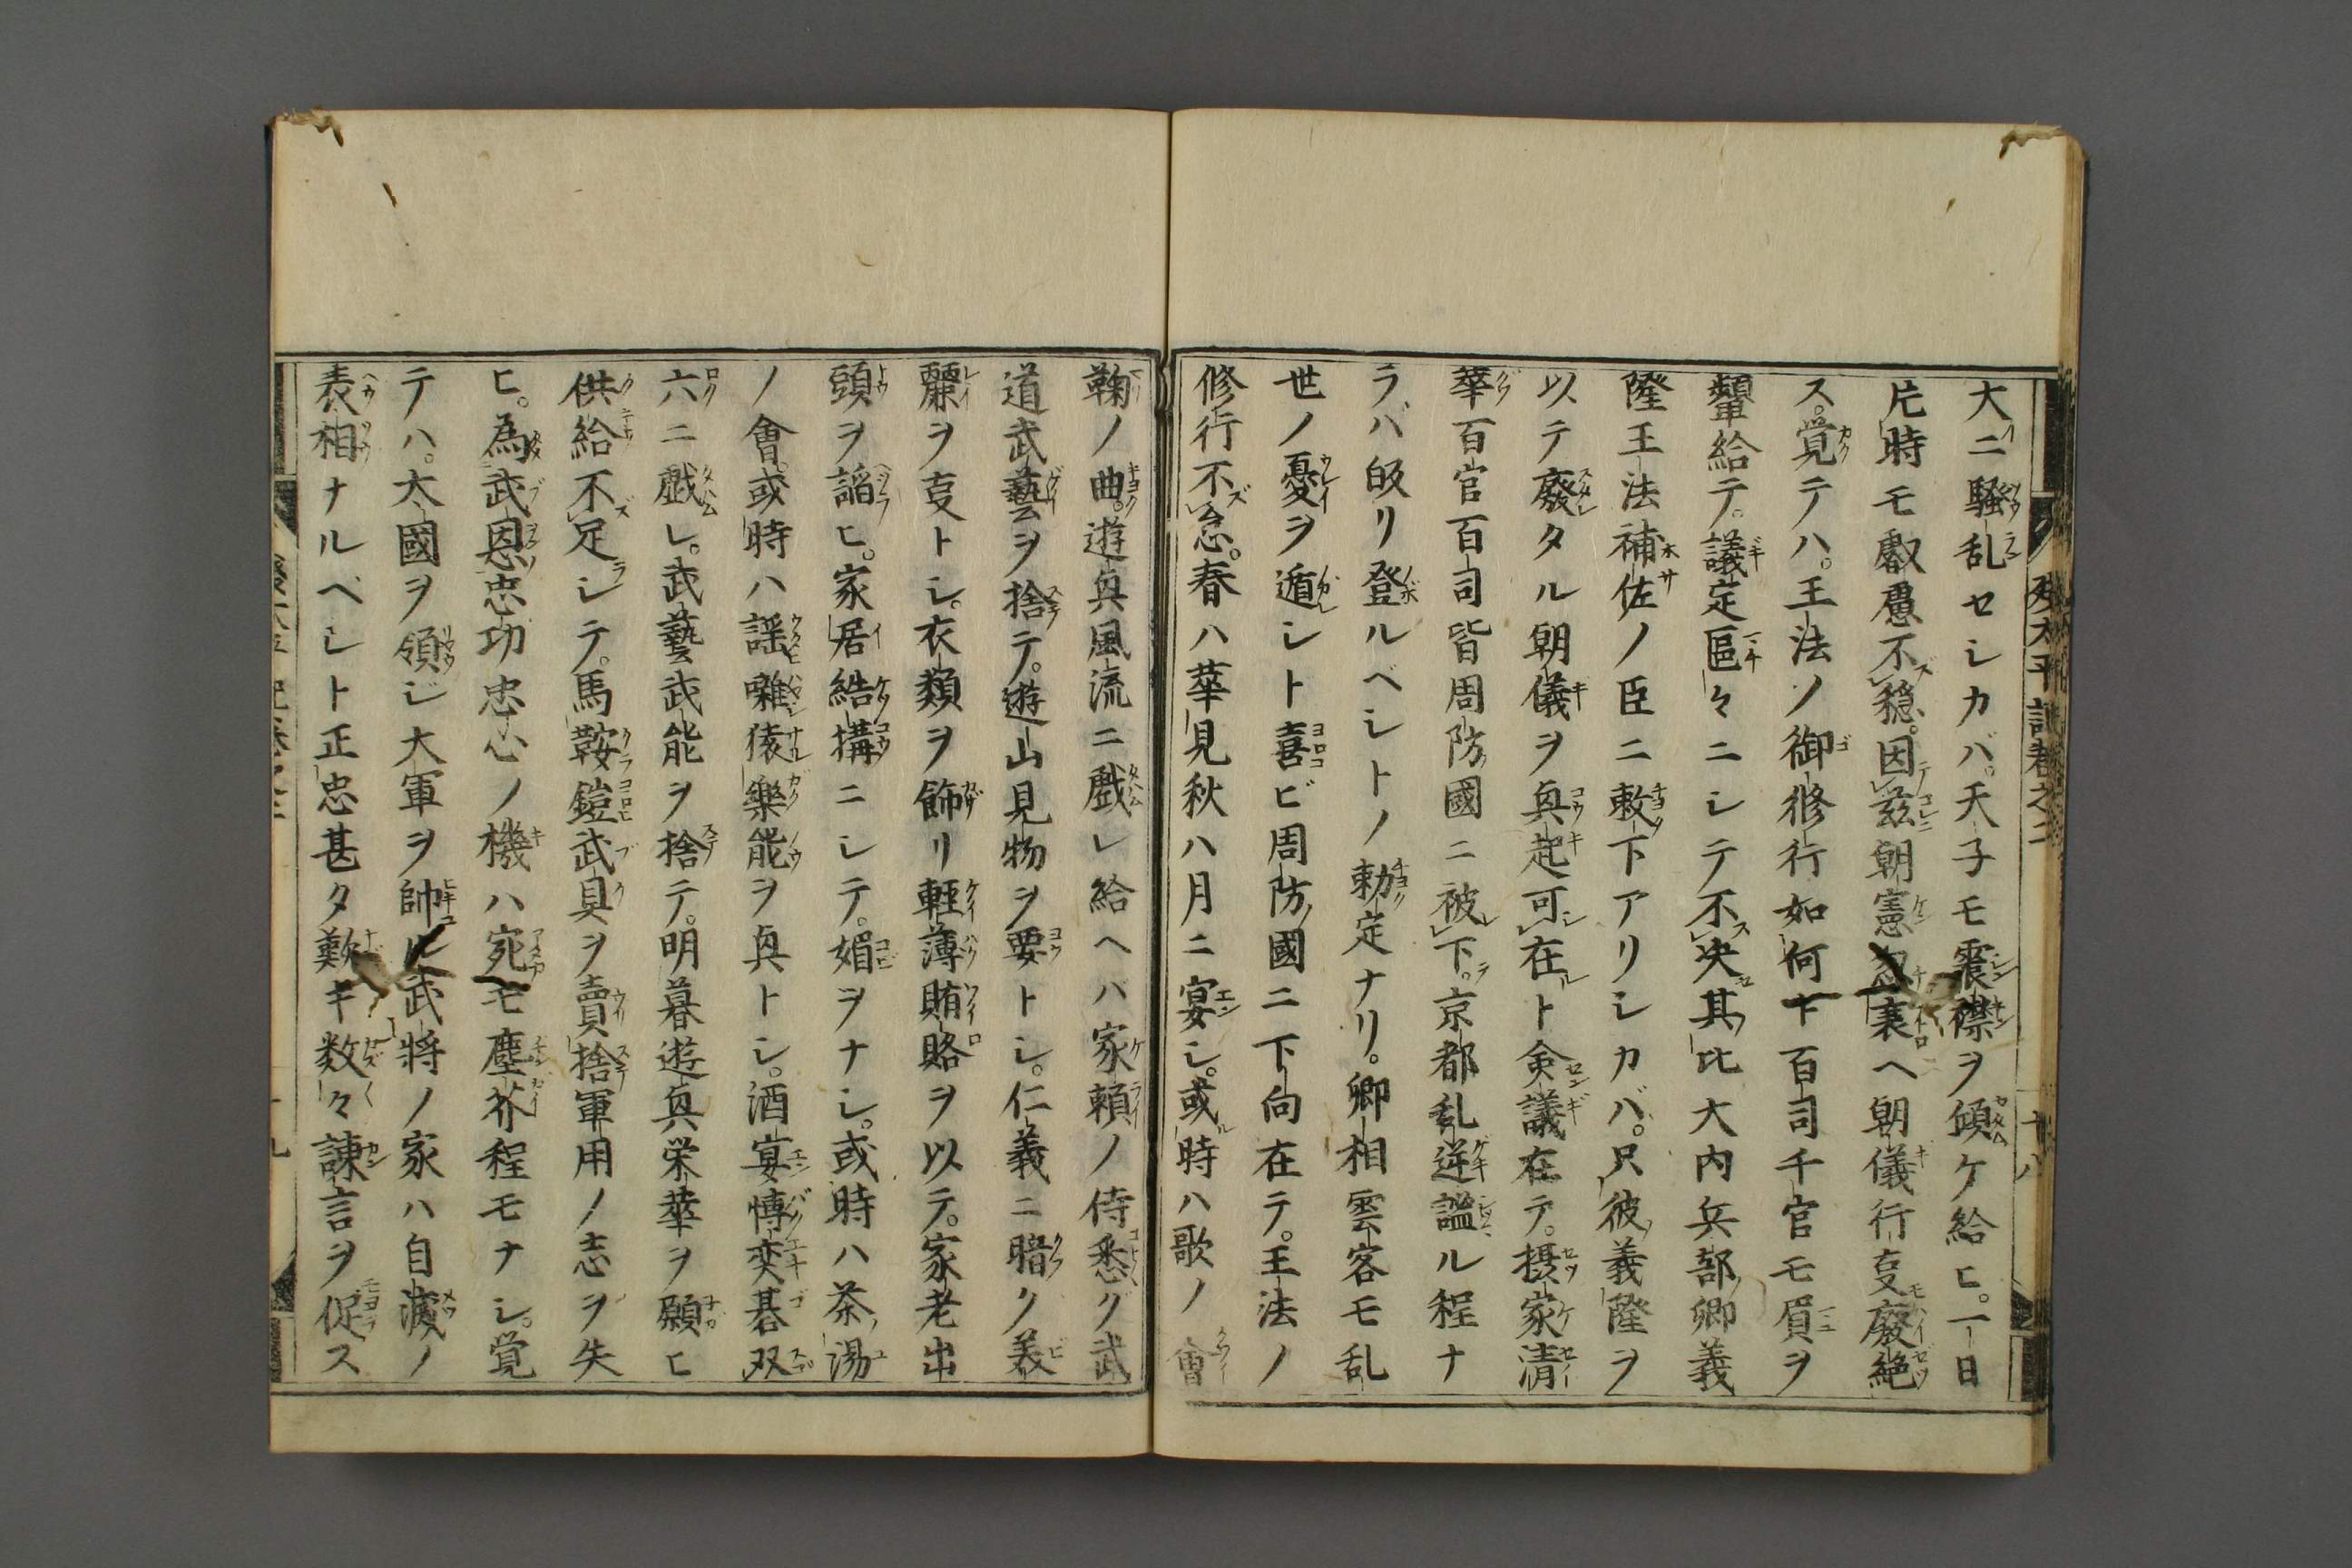 大ニ騒乱セシカバ。天子モ震襟ヲ傾ケ給ヒ。一日
片時モ叡慮不穏。因茲朝憲裏ヘ朝儀行叓廢絶
ス。覚テハ。王法ノ御修行如何ト百司千官モ眉ヲ
顰給テ。議定區々ニシテ不決其比大内兵部卿義
隆王法補佐ノ臣ニ敕下アリシカバ。只彼義隆ヲ
以テ廢タル朝儀ヲ興起可在ト僉議在テ。摂家清
華百官百司皆周防國ニ被下。京都乱逆謐ル程ナ
ラバ皈リ登ルベシトノ勅定ナリ。卿相雲客モ乱
世ノ憂ヲ遁シト喜ビ周防國ニ下向在テ。王法ノ
修行不怠。春ハ華見秋ハ月ニ宴シ。或時ハ歌ノ會
鞠ノ曲。遊興風流ニ戯レ給ヘバ家頼ノ侍悉グ武
道武藝ヲ捨テ。遊山見物ヲ要トシ。仁義ニ暗ク美
麗ヲ叓トシ。衣類ヲ飾リ軽薄賄賂ヲ以テ。家老出
頭ヲ謟ヒ。家居結搆ニシテ。媚ヲナシ。或時ハ茶湯
ノ會。或時ハ謡囃猿樂能ヲ興トシ。酒宴博奕碁双
六ニ戯レ。武藝武能ヲ捨テ。明暮遊興栄華ヲ願ヒ
供給不足シテ。馬鞍鎧武具ヲ賣捨軍用ノ志ヲ失
ヒ。為武恩忠功忠心ノ機ハ宛モ塵芥程モナシ。覚
テハ。大國ヲ領ジ大軍ヲ帥ル武将ノ家ハ自滅ノ
表相ナルベシト正忠甚タ歎キ数々諌言ヲ促ス
残太平記巻之二
十八